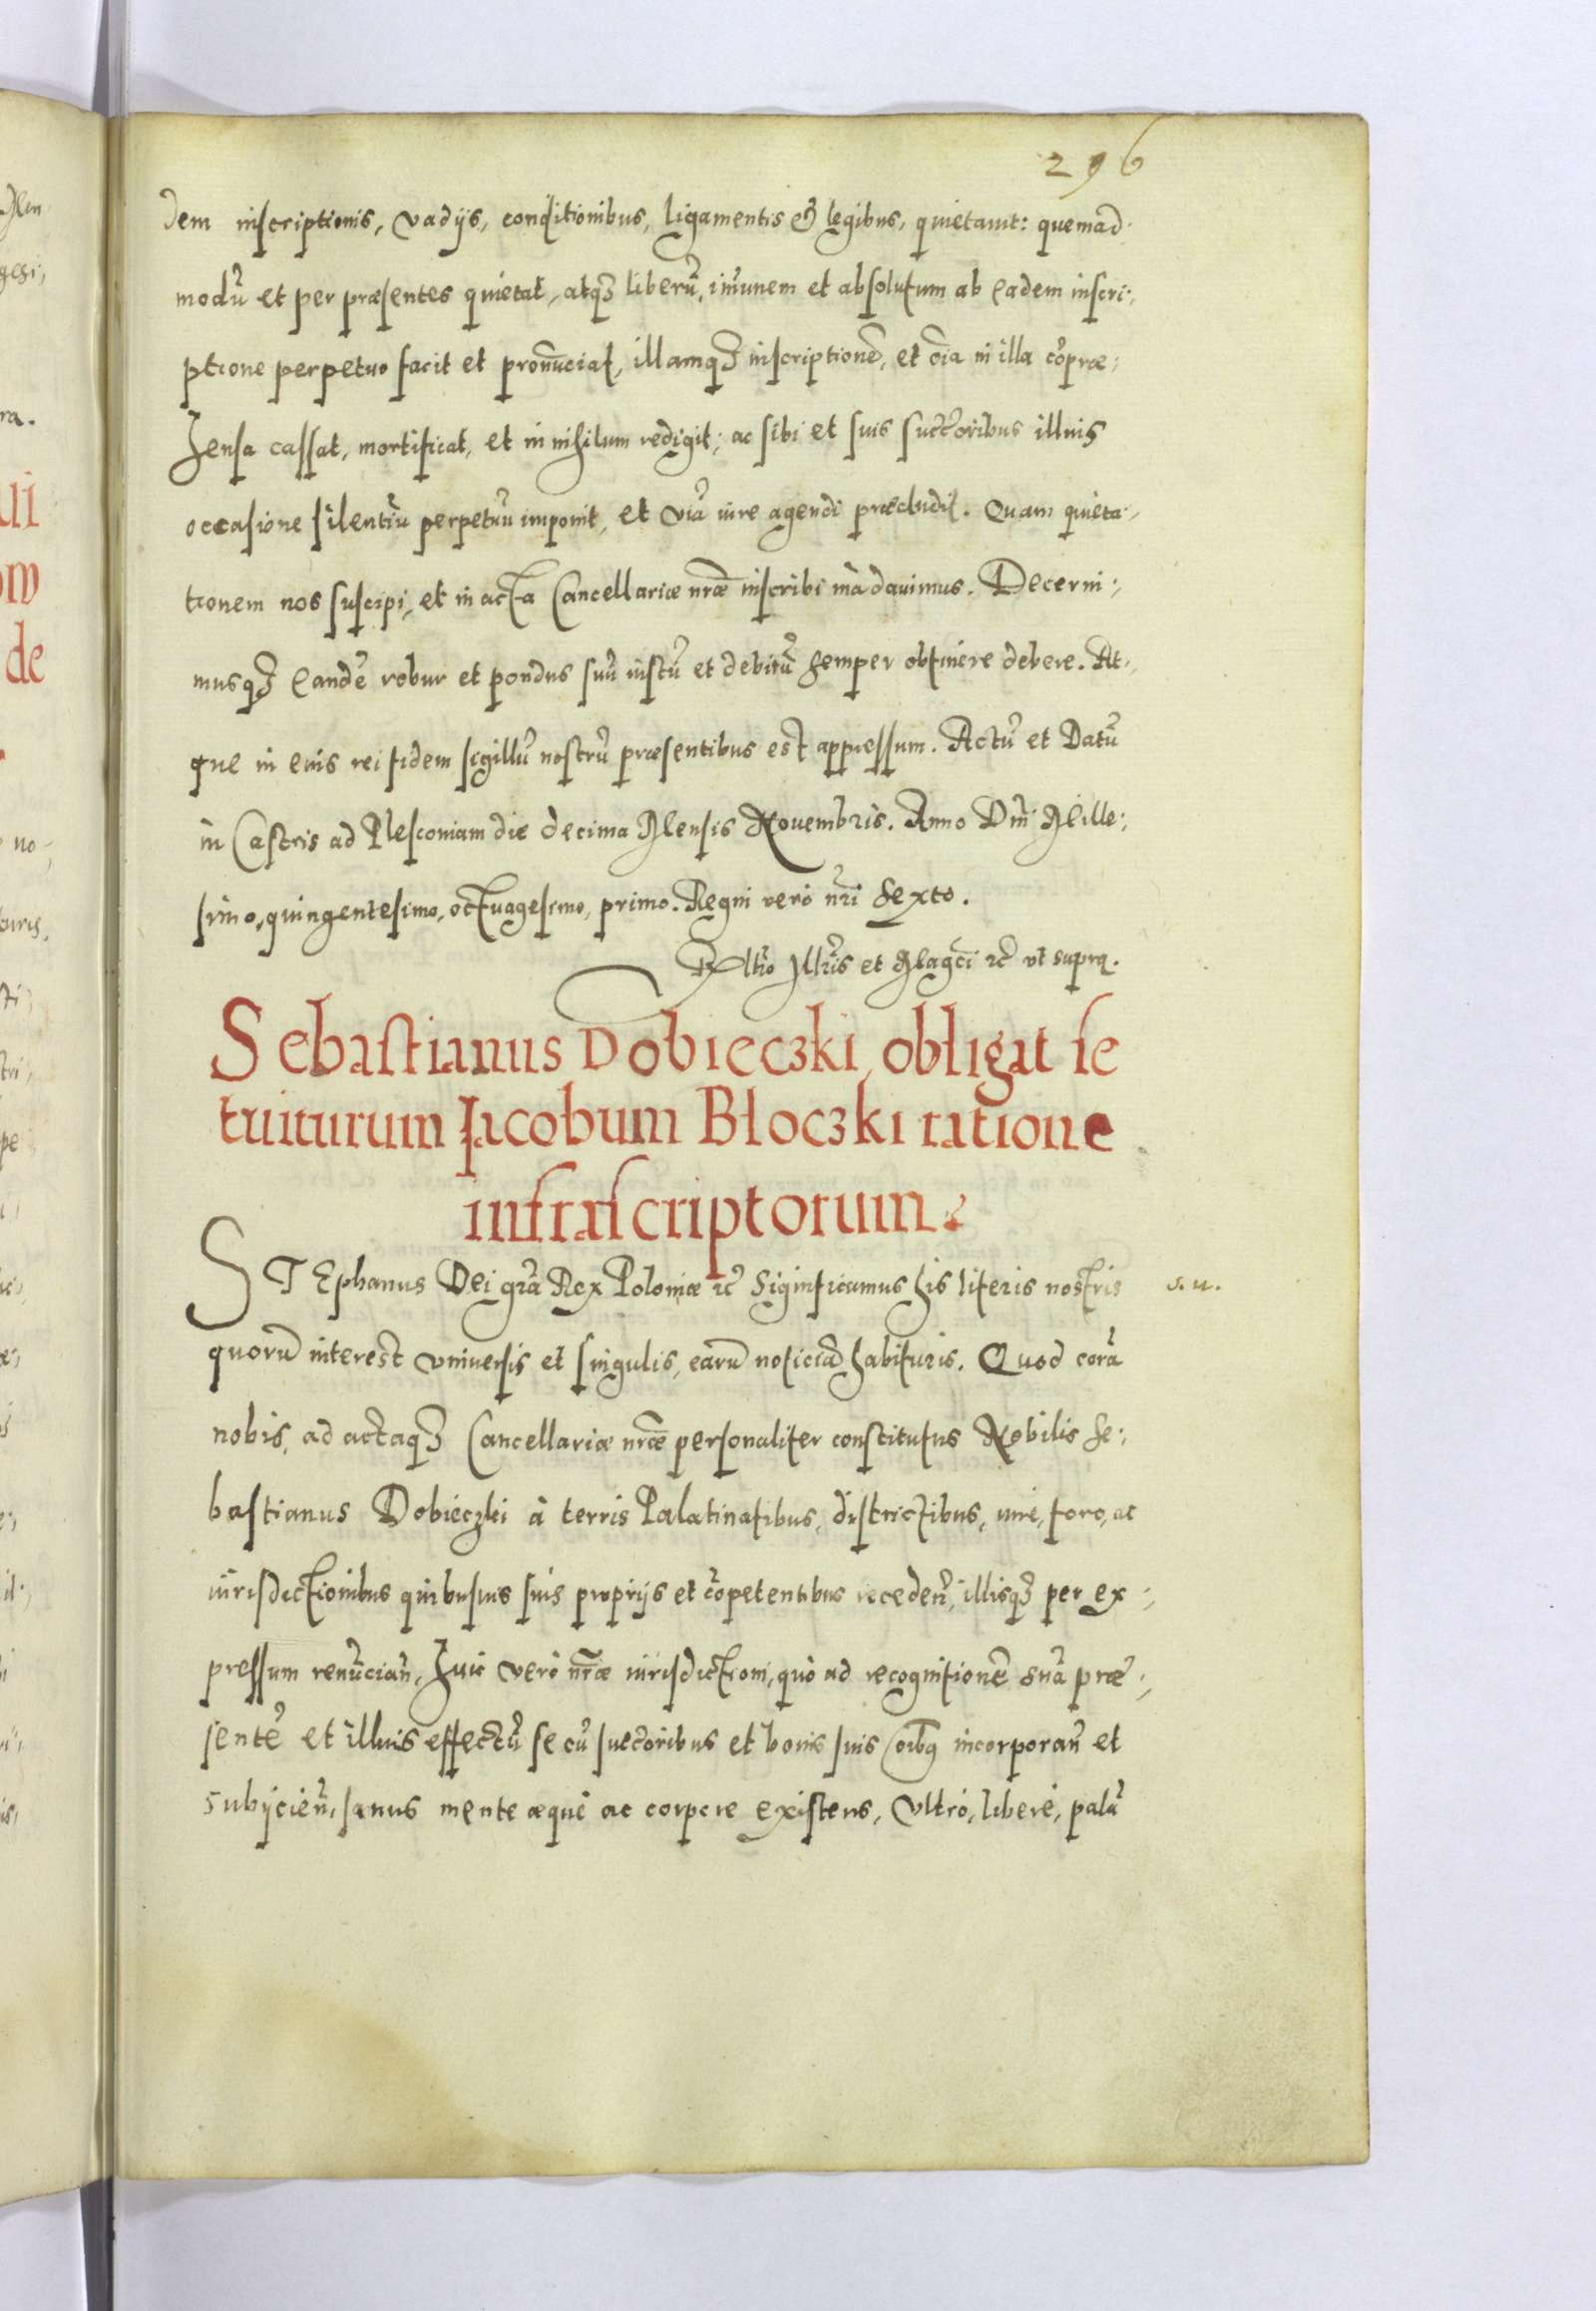 296
dem inscriptionis, vadijs, conditionibus, ligamentis & legibus, quietauit: quemad-
modū et per præsentes quietat, atq3 liberū, im̄unem et absolutum ab eadem inscri-
ptione perpetuo facit et pronūciat, illamq3 inscriptionē, et oı̄a in illa cōpræ-
hensa cassat, mortificat, et in nihilum redigit; ac sibi et suis succ̄oribus illius
occasione silentiū perpetuū imponit, et viā iure agendi præcludit. Quam quieta-
tionem nos suscipi, et in acta Cancellariæ nr̄æ inscribi mādauimus. Decerni-
musq3 eandē robur et pondus suū iustū et debitū semper obtinere debere. At-
que in eius rei fidem sigillū nostrū præsentibus est appressum. Actū et Datū
in Castris ad Plesconiam die decima Mensis Nouembris. Anno Dnī Mille-
simo, quingentesimo, octuagesimo, primo. Regni verò nr̄i sexto.
Rltio Illr̄is et Magc̄i rc̄ vt supra.
Sebastianus Dobieczki, obligat se
tuiturum Jacobum Bloczki ratione
infrascriptorum.
STEphanus Dei gr̄a Rex Poloniæ rc̄ Significamus his literis nostris
s. u.
quorū interest vniuersis et singulis, earū noticiā habituris. Quod corā
nobis, ad actaq3 Cancellariæ nr̄æ personaliter constitutus Nobilis Se-
bastianus Dobieczki à terris Palatinatibus, districtibus, iure, foro, ac
iurisdictionibus quibusuis suis proprijs et cōpetentibus recedeñ, illisq3 per ex-
pressum renūciañ, huic verò nr̄æ iurisdictioni, quò ad recognitionē suā præ-
sentē et illius effectū se cū succ̄oribus et bonis suis oı̄bq incorporañ et
subijcieñ, sanus mente æquè ac corpore existens, vltrò, liberè, palā